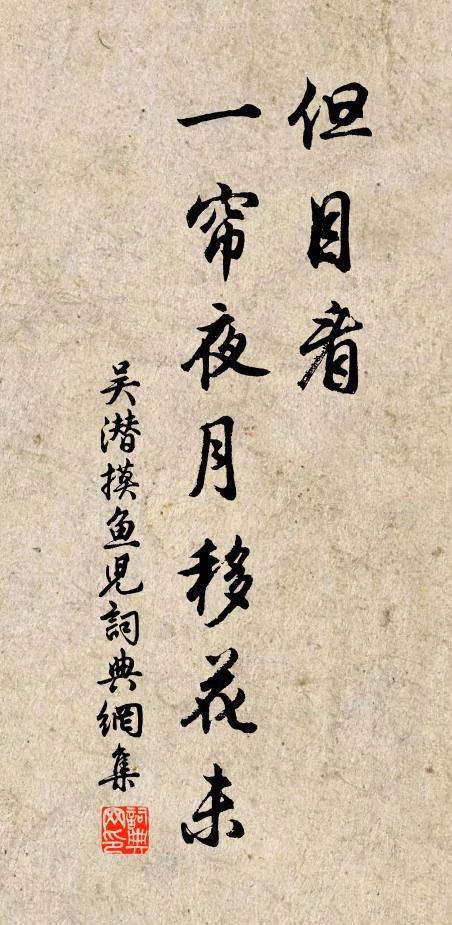 但目看
一帘夜月移花未
吴潜摸鱼児詞典網集
詞典
网印